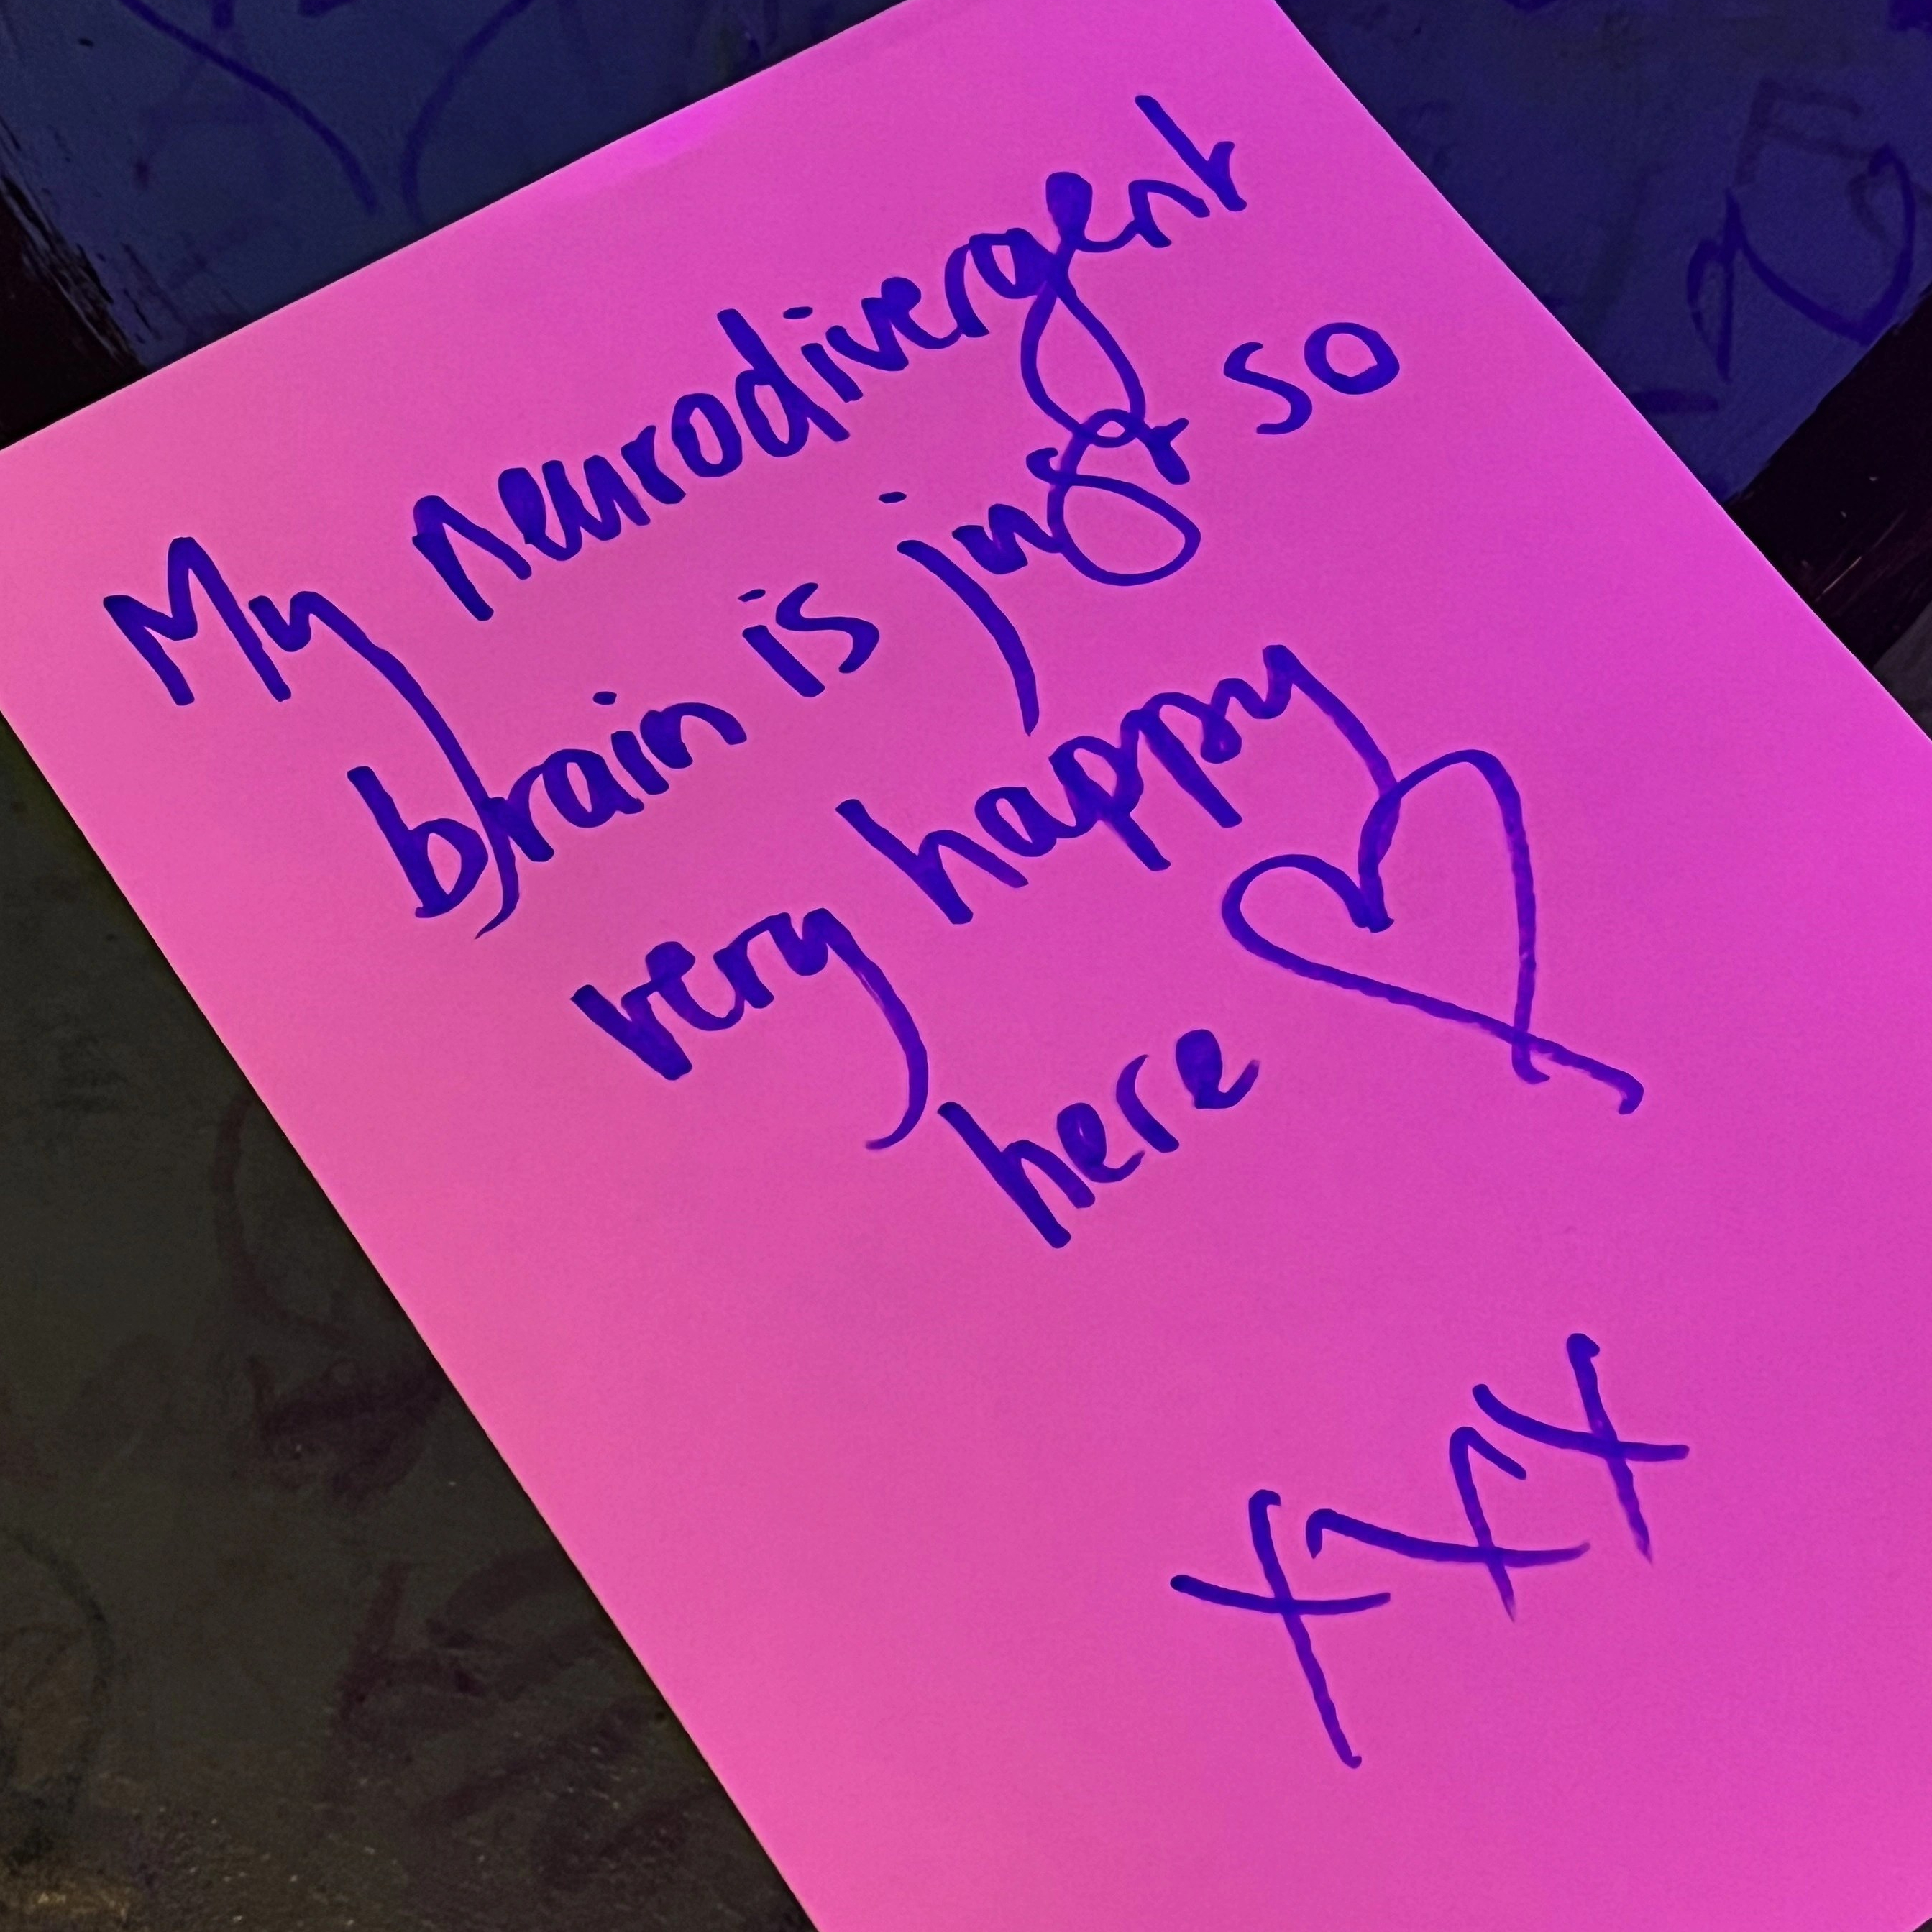 My neurodivergent
brain is just so
very happy
here ♡
xxx